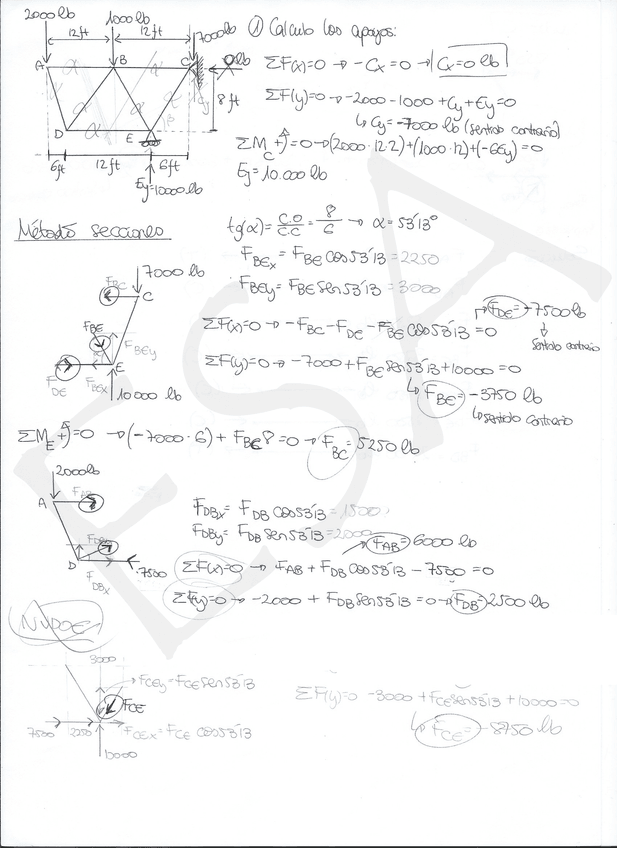 2000 lb 1000 lb
12 ft 12 ft 7000 lb
A B C
0 lb
8 ft
D E
6 ft 12 ft 6 ft
Ey=10000 lb
① Calculo los apoyos:
ΣF(x)=0 → -Cx=0 → Cx=0 lb
ΣF(y)=0 → -2000-1000+Cy+Ey=0
↳ Cy=-7000 lb (sentido contrario)
ΣMc +)=0 → (2000·12·2)+(1000·12)+(-6Ey)=0
Ey=10.000 lb
tg(α)=C.O/C.C=8/6 → α=53'13°
Método secciones
F_BEx=F_BE cos53'13=2250
F_BEy=F_BE sen53'13=3000
7000 lb
F_BC C
F_BE
F_BEy
F_DE F_BEx E
10000 lb
ΣF(x)=0 → -F_BC-F_DE-F_BE cos53'13=0
F_DE=-7500 lb
sentido contrario
ΣF(y)=0 → -7000+F_BE sen53'13+10000=0
↳ F_BE=-3750 lb
↳ sentido contrario
ΣM_E +)=0 → (-7000·6)+F_BC 8=0 → F_BC=5250 lb
2000 lb
A F_AB
F_DB
D 7500
F_DBx
F_DBx=F_DB cos53'13=1500
F_DBy=F_DB sen53'13=2000
F_AB=6000 lb
ΣF(x)=0 → F_AB+F_DB cos53'13-7500=0
ΣF(y)=0 → -2000+F_DB sen53'13=0 → F_DB=2500 lb
NUDO E
3000
F_CEy=F_CE sen53'13
F_CE
7500 2250 F_CEx=F_CE cos53'13
10000
ΣF(y)=0 -3000+F_CE sen53'13+10000=0
↳ F_CE=-8750 lb
ESA